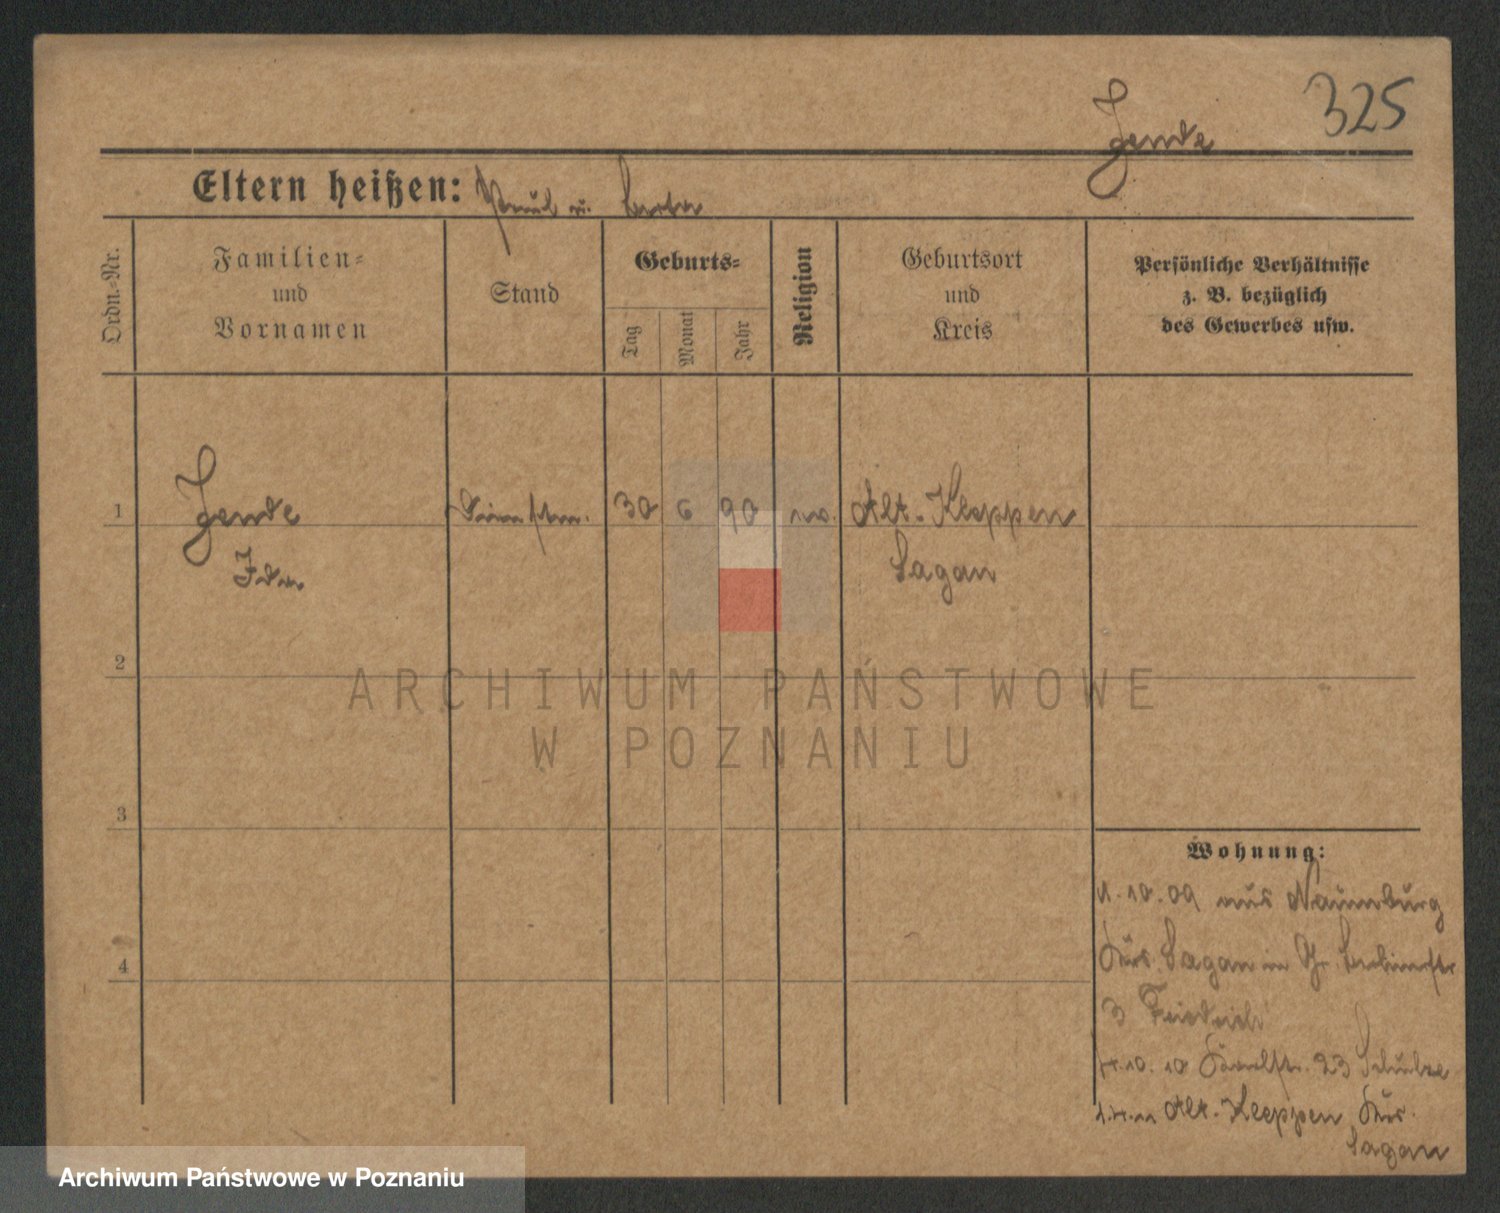 325
Jende
Eltern heißen: Paul u. Berta
Ordn.-Nr.
Familien-
und
Vornamen
Stand
Geburts-
Tag
Monat
Jahr
Religion
Geburtsort
und
Kreis
Persönliche Verhältnisse
z. B. bezüglich
des Gewerbes usw.
1
Jende
Ida
30 6 90 ev.
Alt-Kleppen
Sagan
2
3
4
Wohnung:
1.10.09 aus Naumburg
Krs. Sagan in Gr.
3 Friedrich
10.10 Karlstr. 23 Schulze
Alt-Kleppen Krs.
Sagan
ARCHIWUM PAŃSTWOWE
W POZNANIU
Archiwum Państwowe w Poznaniu